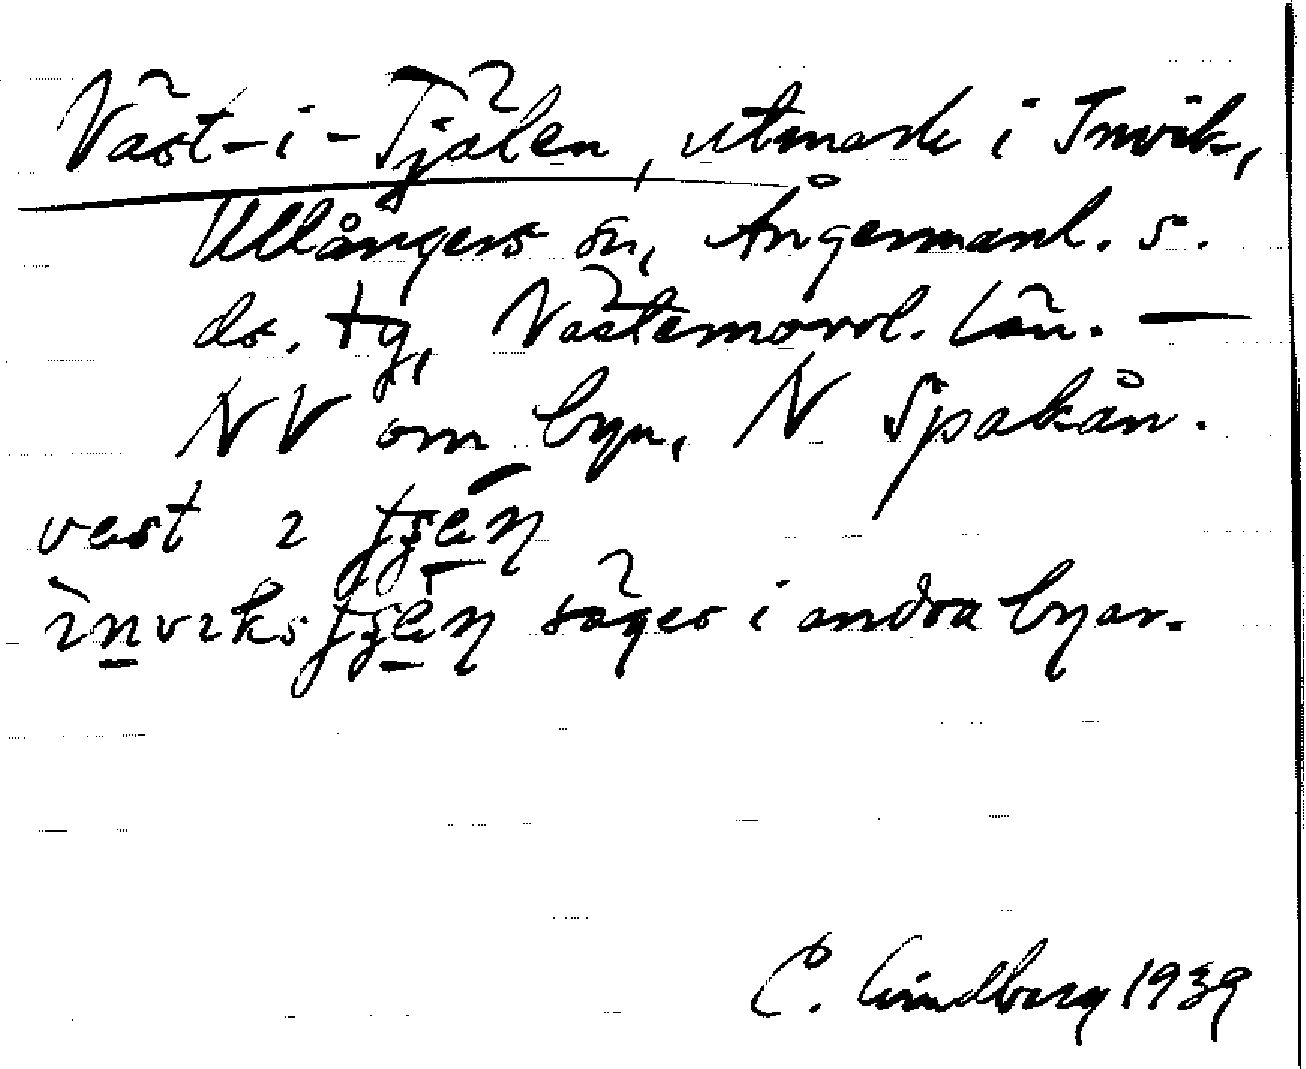 Väst-i-Tjälen, utmark i Invik,
Ullångers sn, Ångermanl. s.
ds. tg, Västernorrl. län. —
NV om byn, N Spakån.
vest ɩ
säges i andra byar.
C. Lindberg 1939